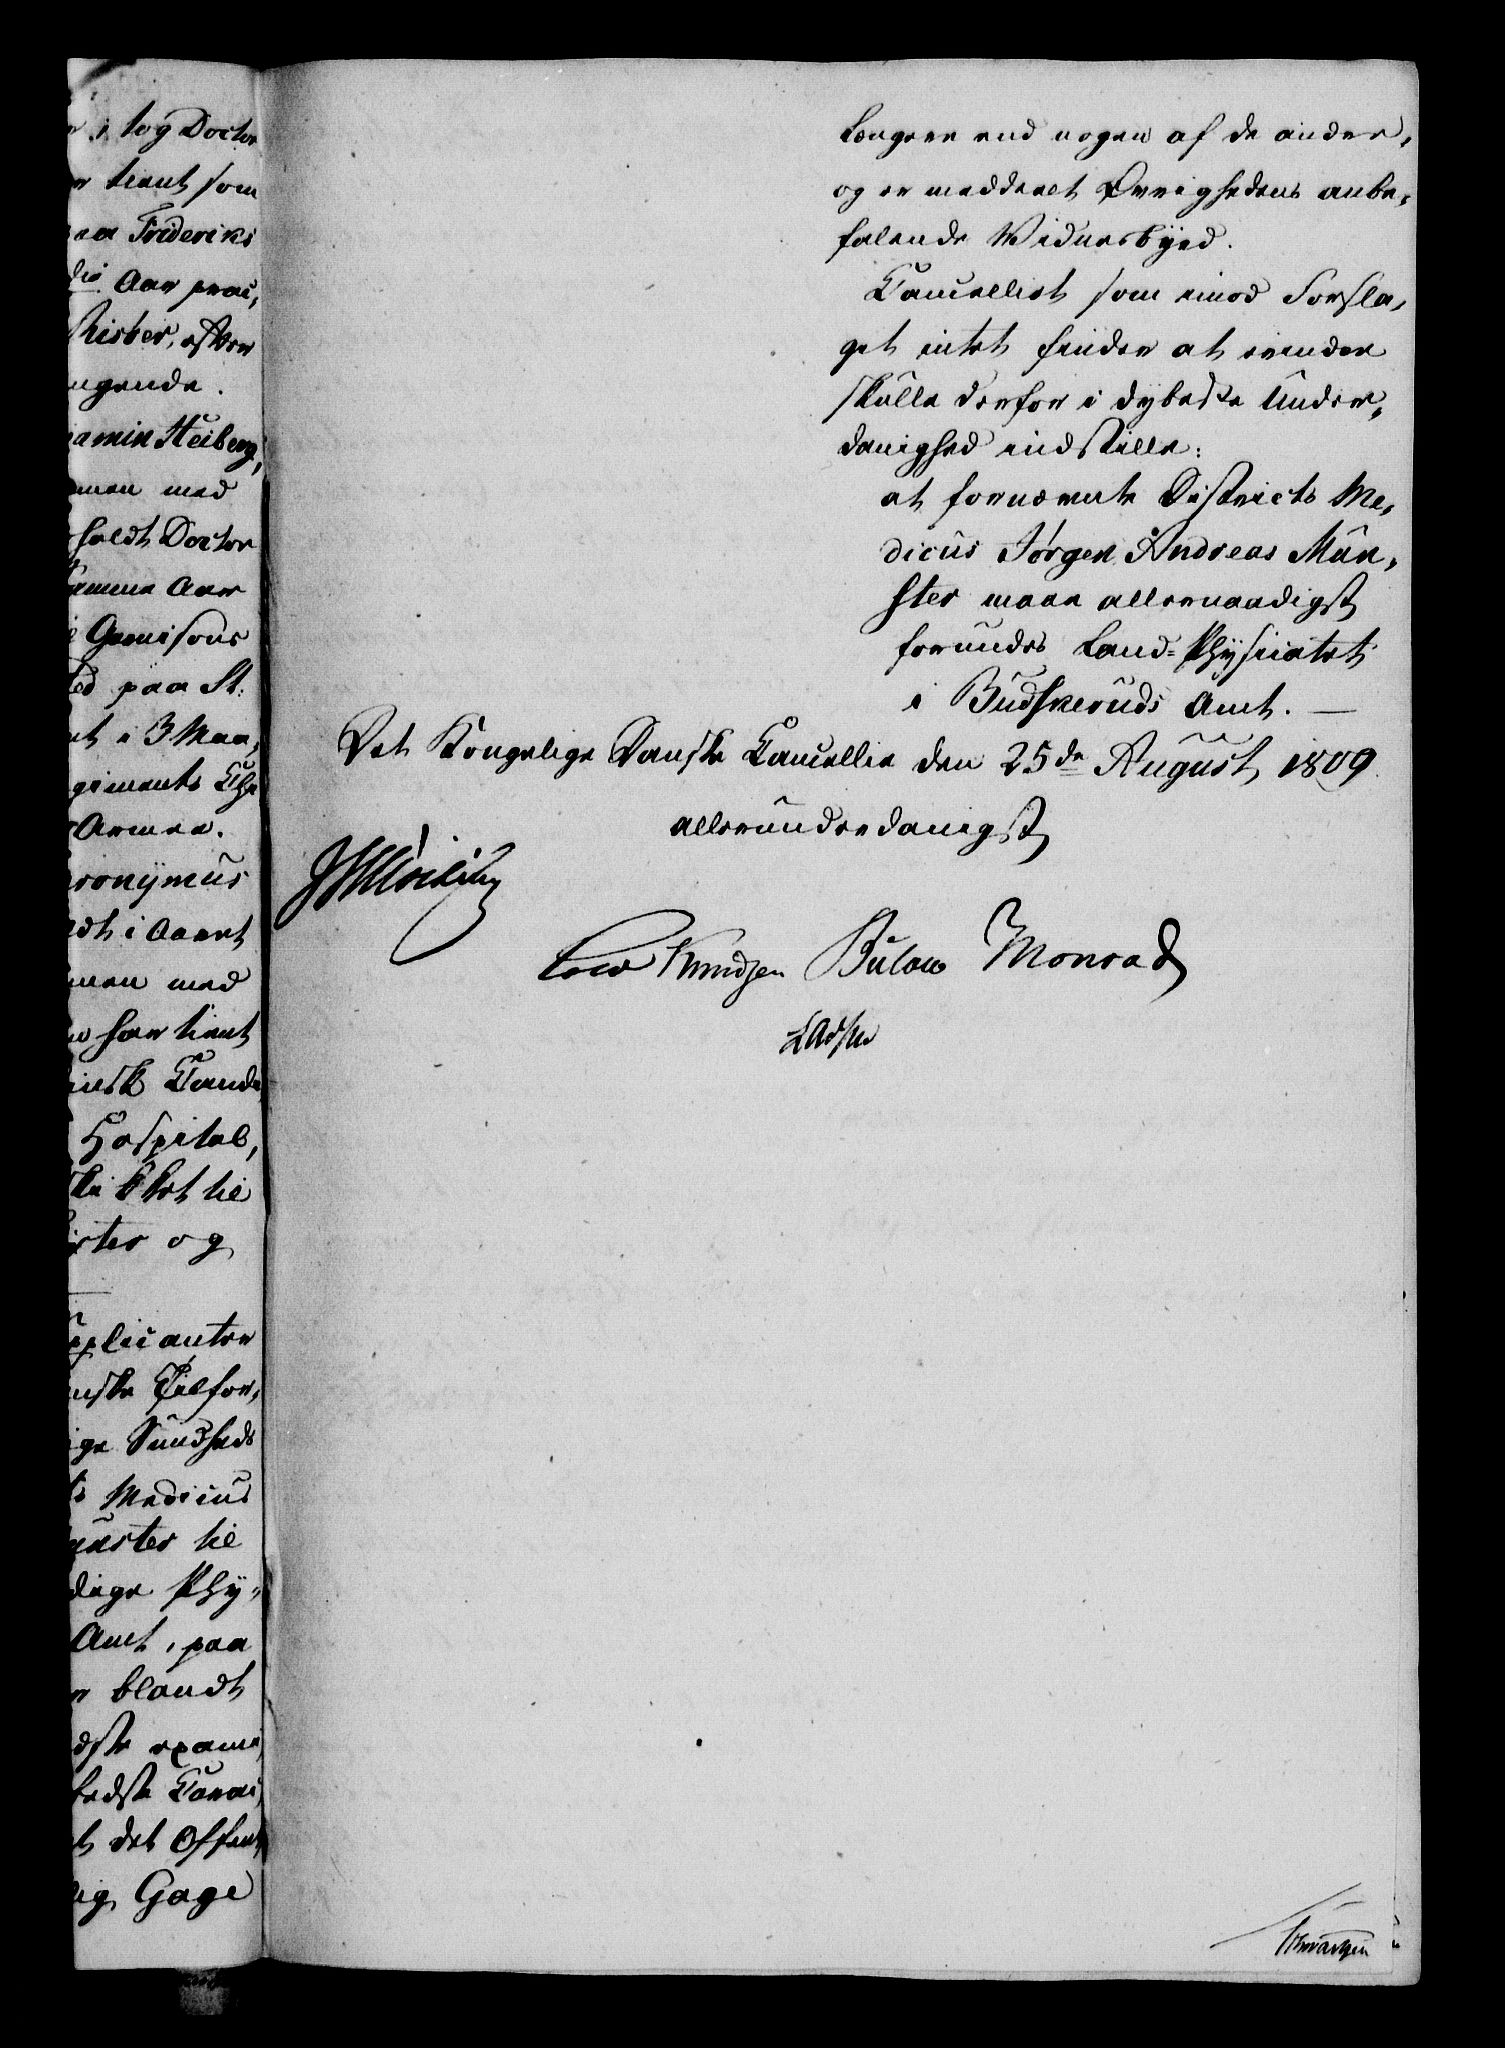 i tog Doctor
r tient som
paa Frideriks
die Aar prac,
Risber, efter
ngende.
jamin Heiberg,
men med
holdt Doctor
samme Aar
Garnisons
ed paa St:
et i 3 Maa,
giments Chi
Armee.
ronÿmus
edt i Aaret
men med
har tient
insk Candi
Hospital,
ikket til
ster og
upplicanter
nske Tilfor,
ige Sundheds
ts Medicus
ünster til
dige Phÿ-
Amt, paa
r blandt
dste exami
bedste Carac,
t det Offent
lig Gage
længere end nogen af de andre,
og er meddeelt Øvrighedens anbe,
falende Vidnesbÿrd.
Cancelliet som imod Forsla,
get intet finder at erindre
skulle derfor i dybeste Under,
danighed indstille:
at fornævnte Districts Me,
dicus Jørgen Andreas Mün,
ster maae allernaadigst
forundes Land-Phÿsicatet
i Budskeruds Amt. —
Det Kongelige Danske Cancellie den 25de August 1809
allerunderdanigst
Kaas
Cold Knudsen Bülow Monrad
Lassen